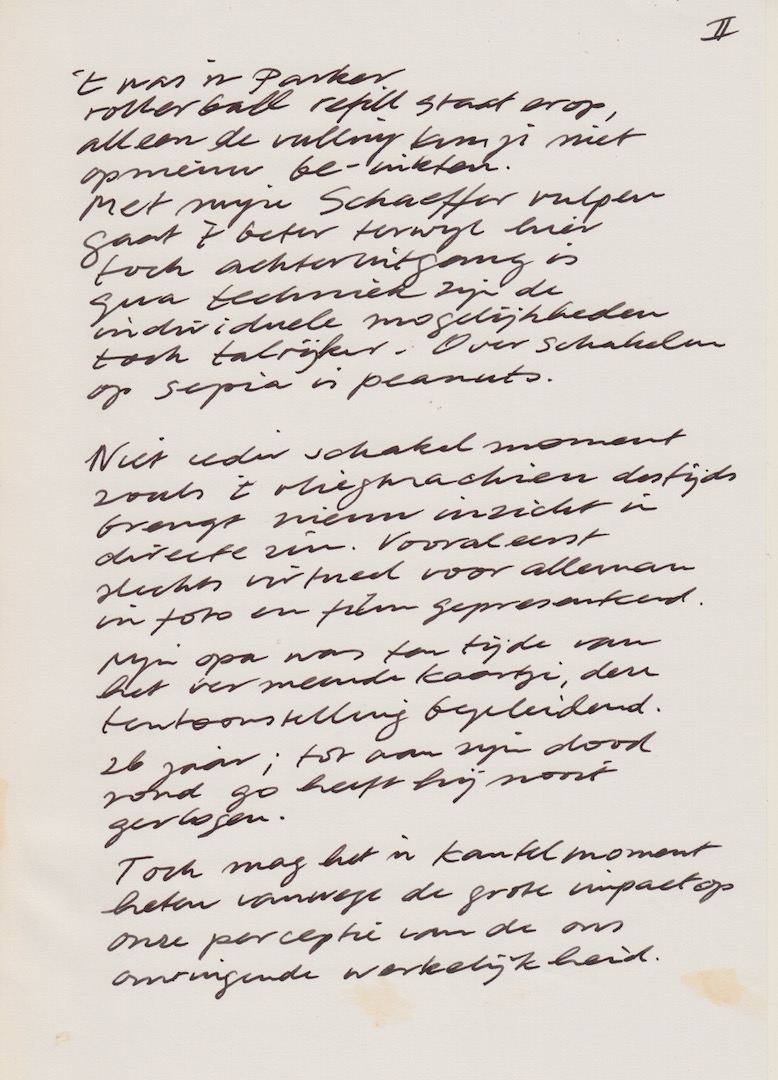 II
't was 'n Parker
rollerball refill staat erop,
alleen de vulling kun je niet
opnieuw be-inkten.
Met mijn Schaeffer vulpen
gaat 't beter terwijl hier
toch achteruitgang is
qua techniek zijn de
individuele mogelijkheden
toch talrijker. Over schakelen
op sepia is peanuts.
Niet ieder schakel moment
zoals 't vliegmachien destijds
brengt nieuw inzicht in
directe zin. Vooraleerst
slechts virtueel voor alleman
in foto en film gepresenteerd.
Mijn opa was ten tijde van
het vermeende kaartje, deze
tentoonstelling begeleidend.
26 jaar; tot aan zijn dood
rond 90 heeft hij nooit
gevlogen.
Toch mag het 'n kantelmoment
heten vanwege de grote impact op
onze perceptie van de ons
omringende werkelijkheid.